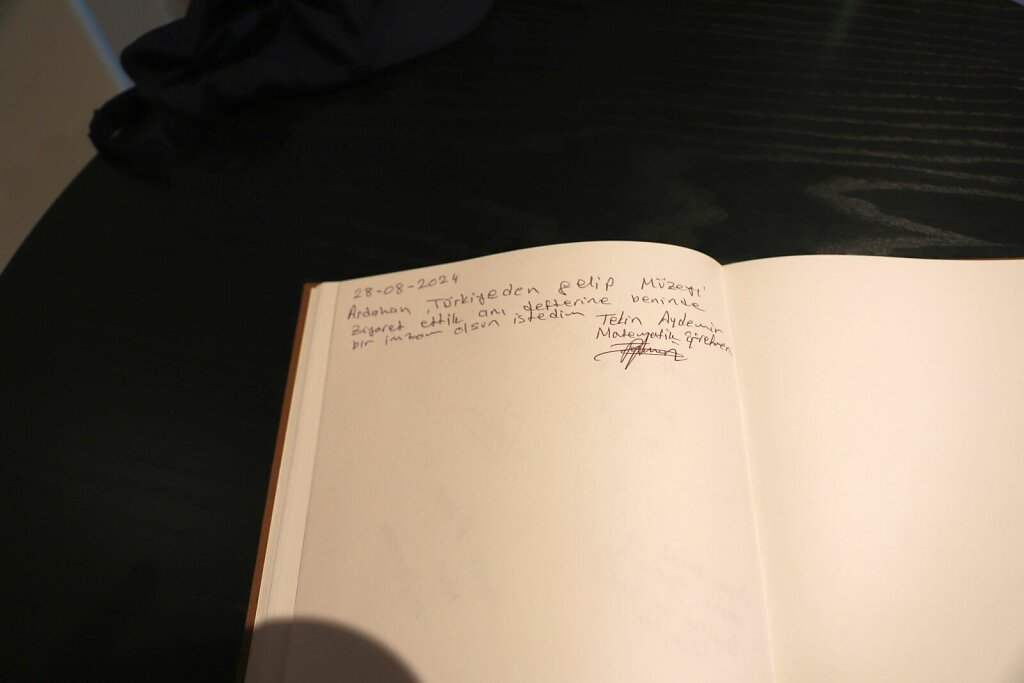 28-08-2024
Ardahan, Türkiyeden gelip Müzeyi
Ziyaret ettik anı defterine beninde
bir imzam olsun istedim
Tekin Aydemir
Matematik öğretmeni